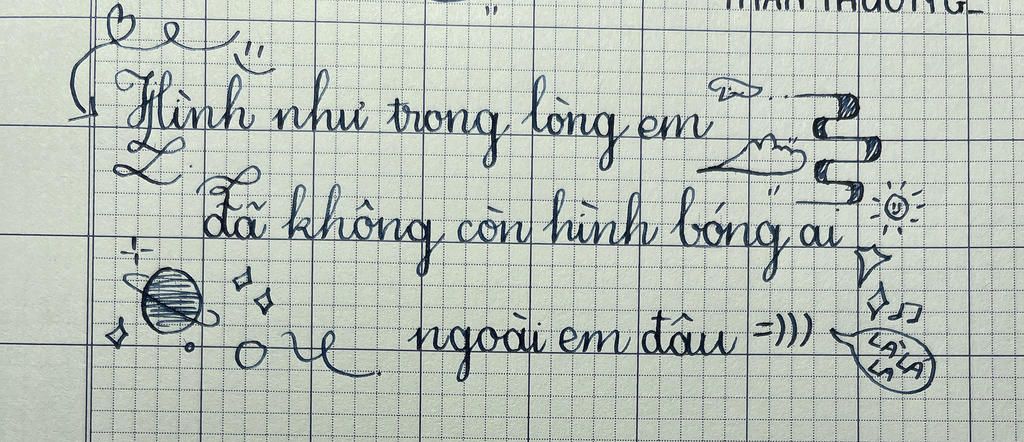 Hình như trong lòng em
đã không còn hình bóng ai
ngoài em đâu =)))
LA LÁ
LA